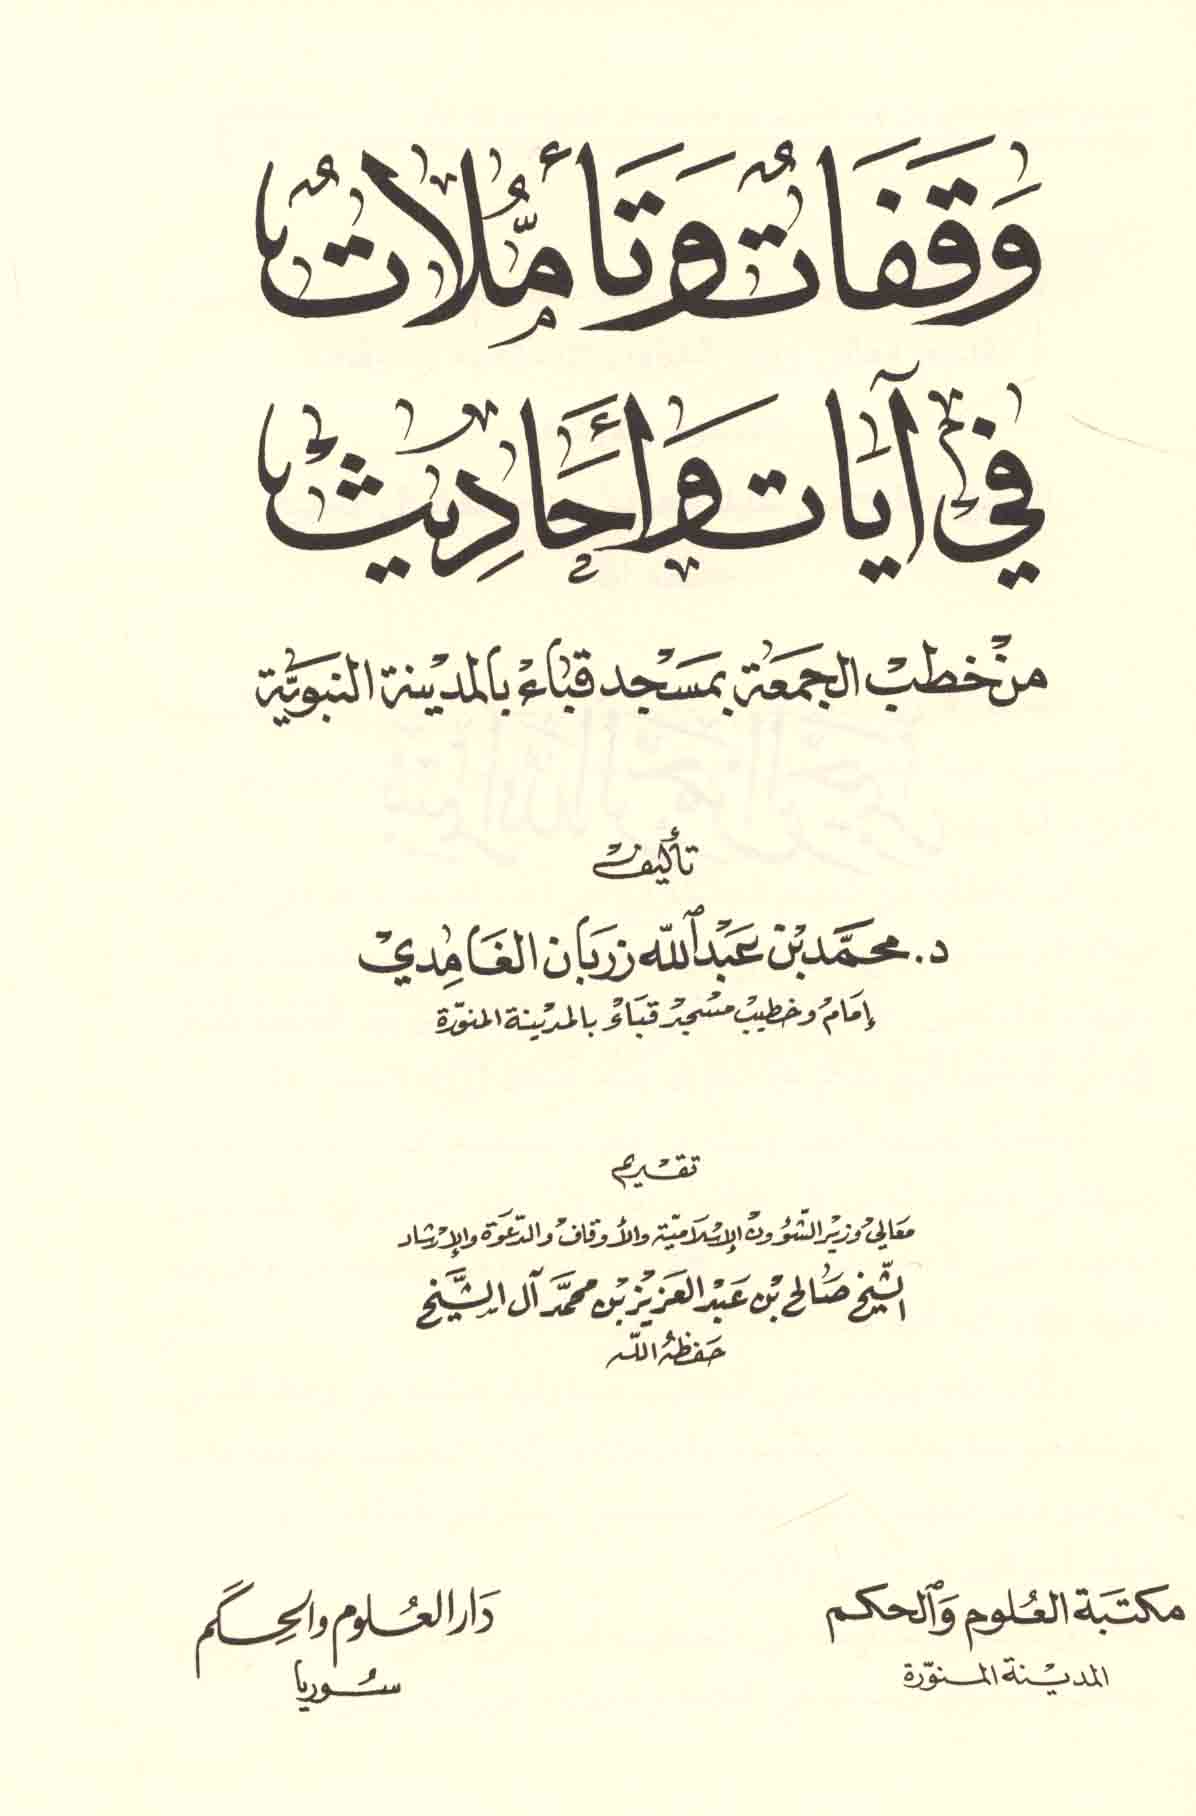 وَقَفَاتٌ وَتَأَمُّلَاتٌ
فِي آيَاتٍ وَأَحَادِيثَ
من خطب الجمعة بمسجد قباء بالمدينة النبويّة
تأليف
د. محمّد بن عبد الله زربان الغامدي
إمام وخطيب مسجد قباء بالمدينة المنوّرة
تقديم
معالي وزير الشّؤون الإسلاميّة والأوقاف والدّعوة والإرشاد
الشّيخ صالح بن عبد العزيز بن محمّد آل الشّيخ
حفظه اللّه
مكتبة العلوم والحكم
المدينة المنوّرة
دار العلوم والحكم
سوريا